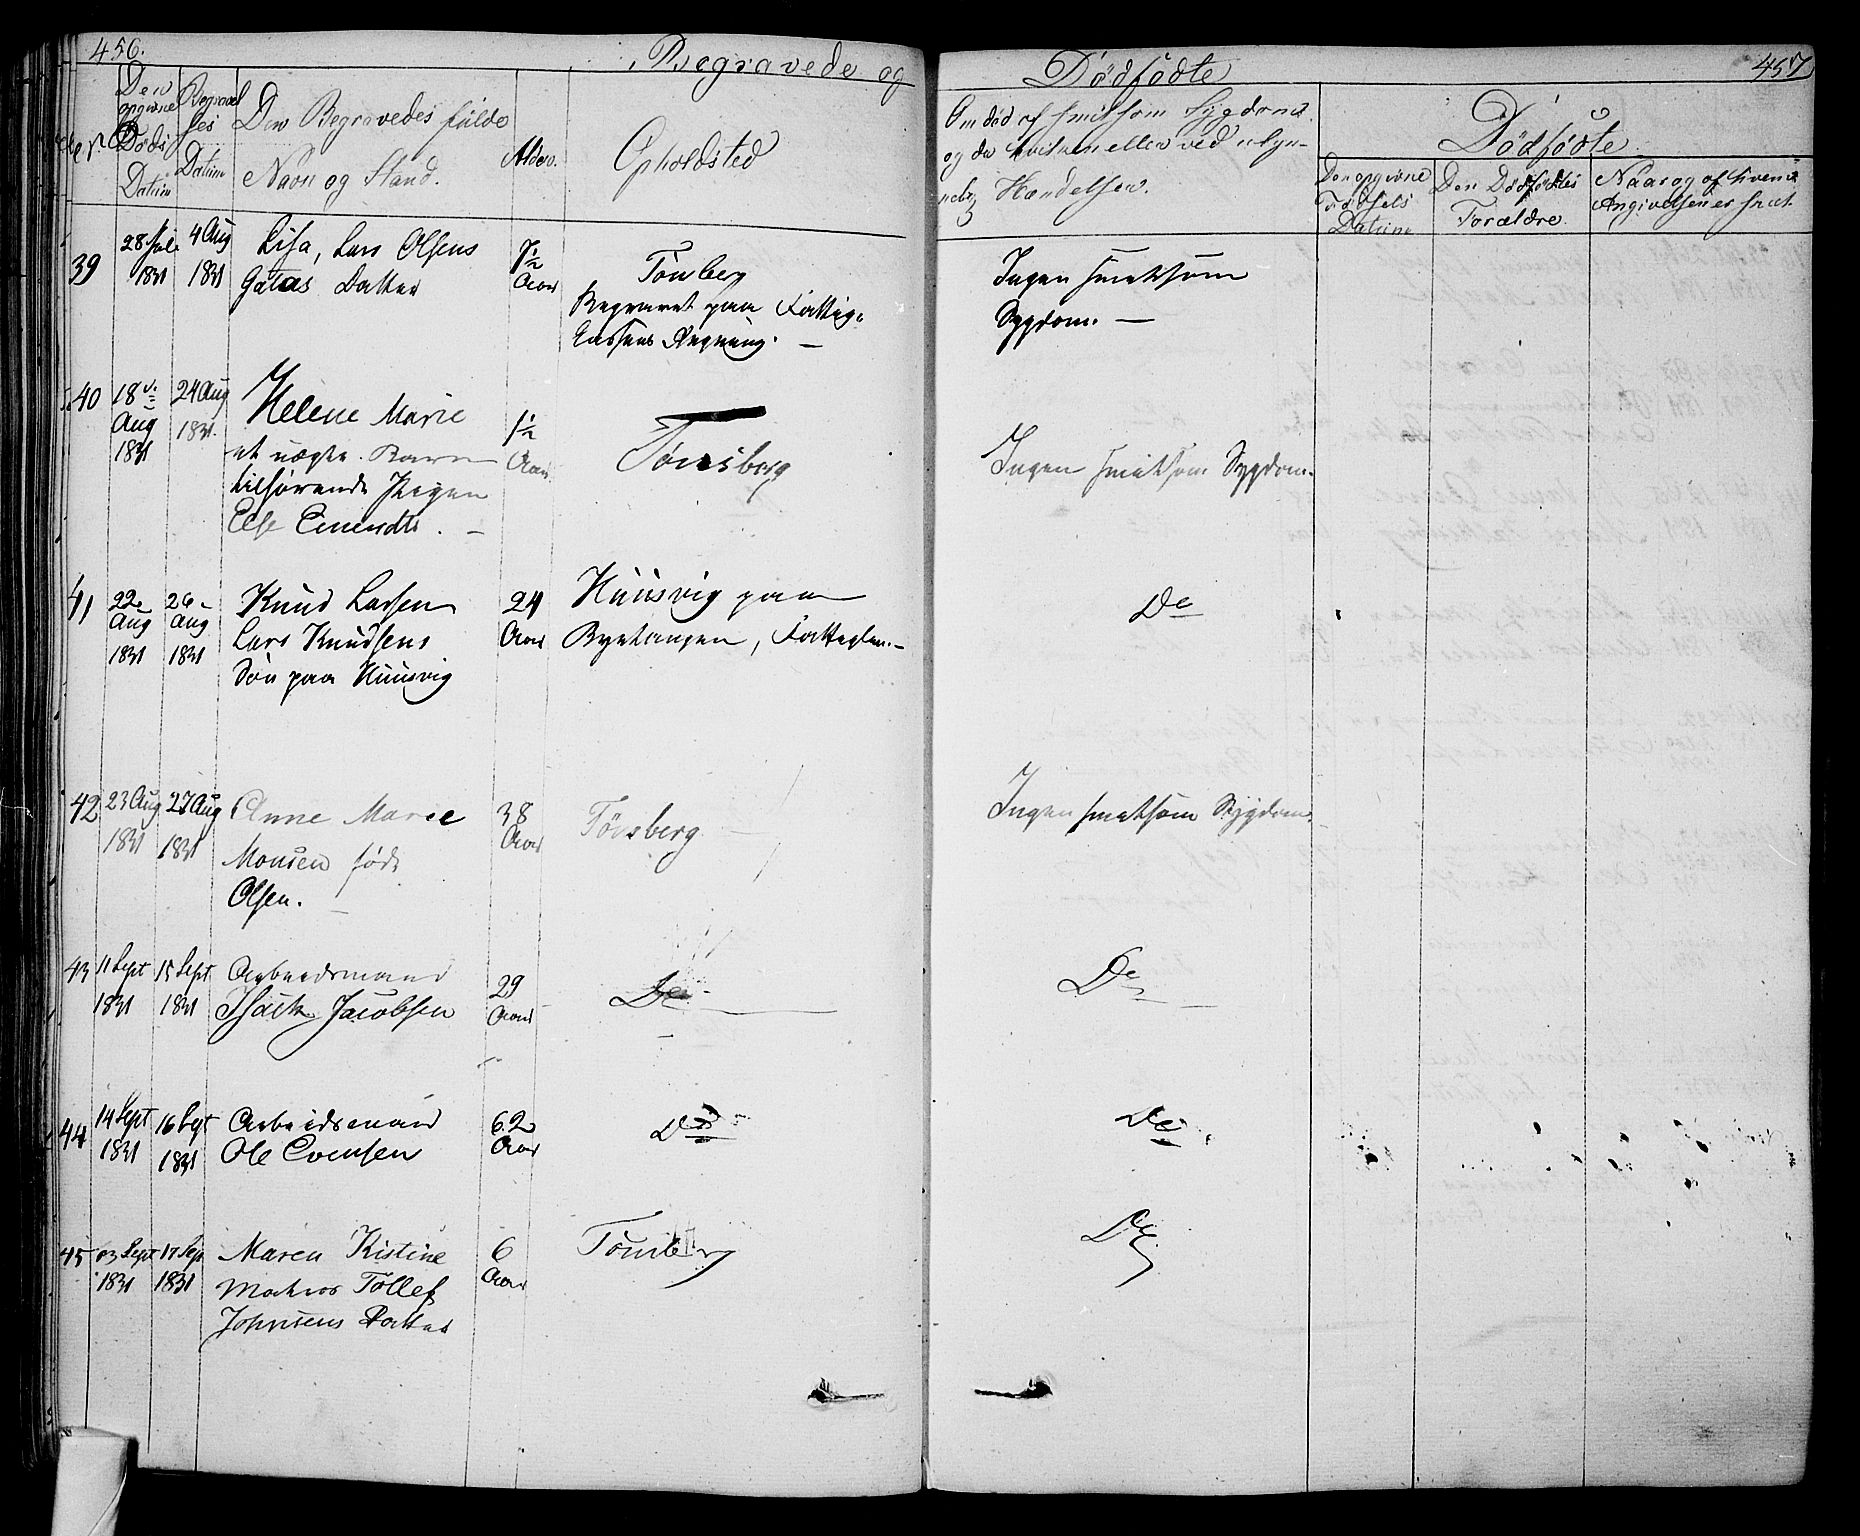 456.
Begravede og
Den opgivne Døds Datum
Begravelses Datum
Den Begravedes fulde
Navn og Stand.
Alder.
Opholdsted
Dødfødte
457
Om død af smitsom Sygdom
og da hvilken eller ved ulyk-
Hændelser.
Dødfødte
Den opgivne
Fødsels
Datum
Den Dødfødtes
Forældre.
Naar og af hvem
Angivelsen er skeet
39
28 Juli
1831
4 Aug
1831
Lisa, Lars Olsens
Gatas Datter
7½
Aar
Tönsberg
Begravet paa Fattig-
Cassens Regning. —
Ingen smitsom
Sygdom. —
40
18
Aug
1831
24 Aug
1831.
Helene Marie
et uægte Barn
tilhørende Pigen
Else
1½
Aar
Tønsberg
Ingen smitsom Sygdom.
41
22
Aug
1831
26
Aug
1831
Knud Larsen
Lars Knudsens
Søn paa Huusvig
24
Aar
Huusvig paa
Byetangen, Fattiglem. —
Do
42
23 Aug
1831
27 Aug
1831
Anne Marie
Monsen født
Olsen. —
38
Aar
Tönsberg —
Ingen smitsom Sygdom.
43
11 Sept
1831
15 Sept
1831
Arbeidsmand
Isack Jacobsen
29
Aar
Do —
Do
44
14 Sept
1831
16 Sept
1831
Arbeidsmand
Ole Evensen
62
Aar
Do
Do
45
13 Sept
1831
17 Sep
1831
Maren Kistine
Matros Tollef
Johnsens Datter
6
Aar
Tönsberg
Do